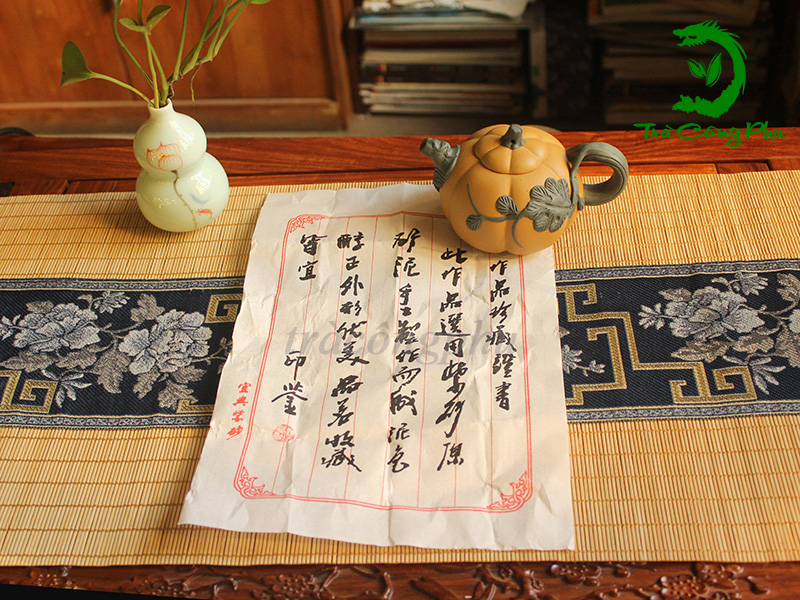 Trà Công Phu
作品珍藏證書
此作品選用紫砂原
矿泥手工製作而成泥色
醇正外形优美品茗收藏
皆宜
印莹
宜興紫砂
trà công phu